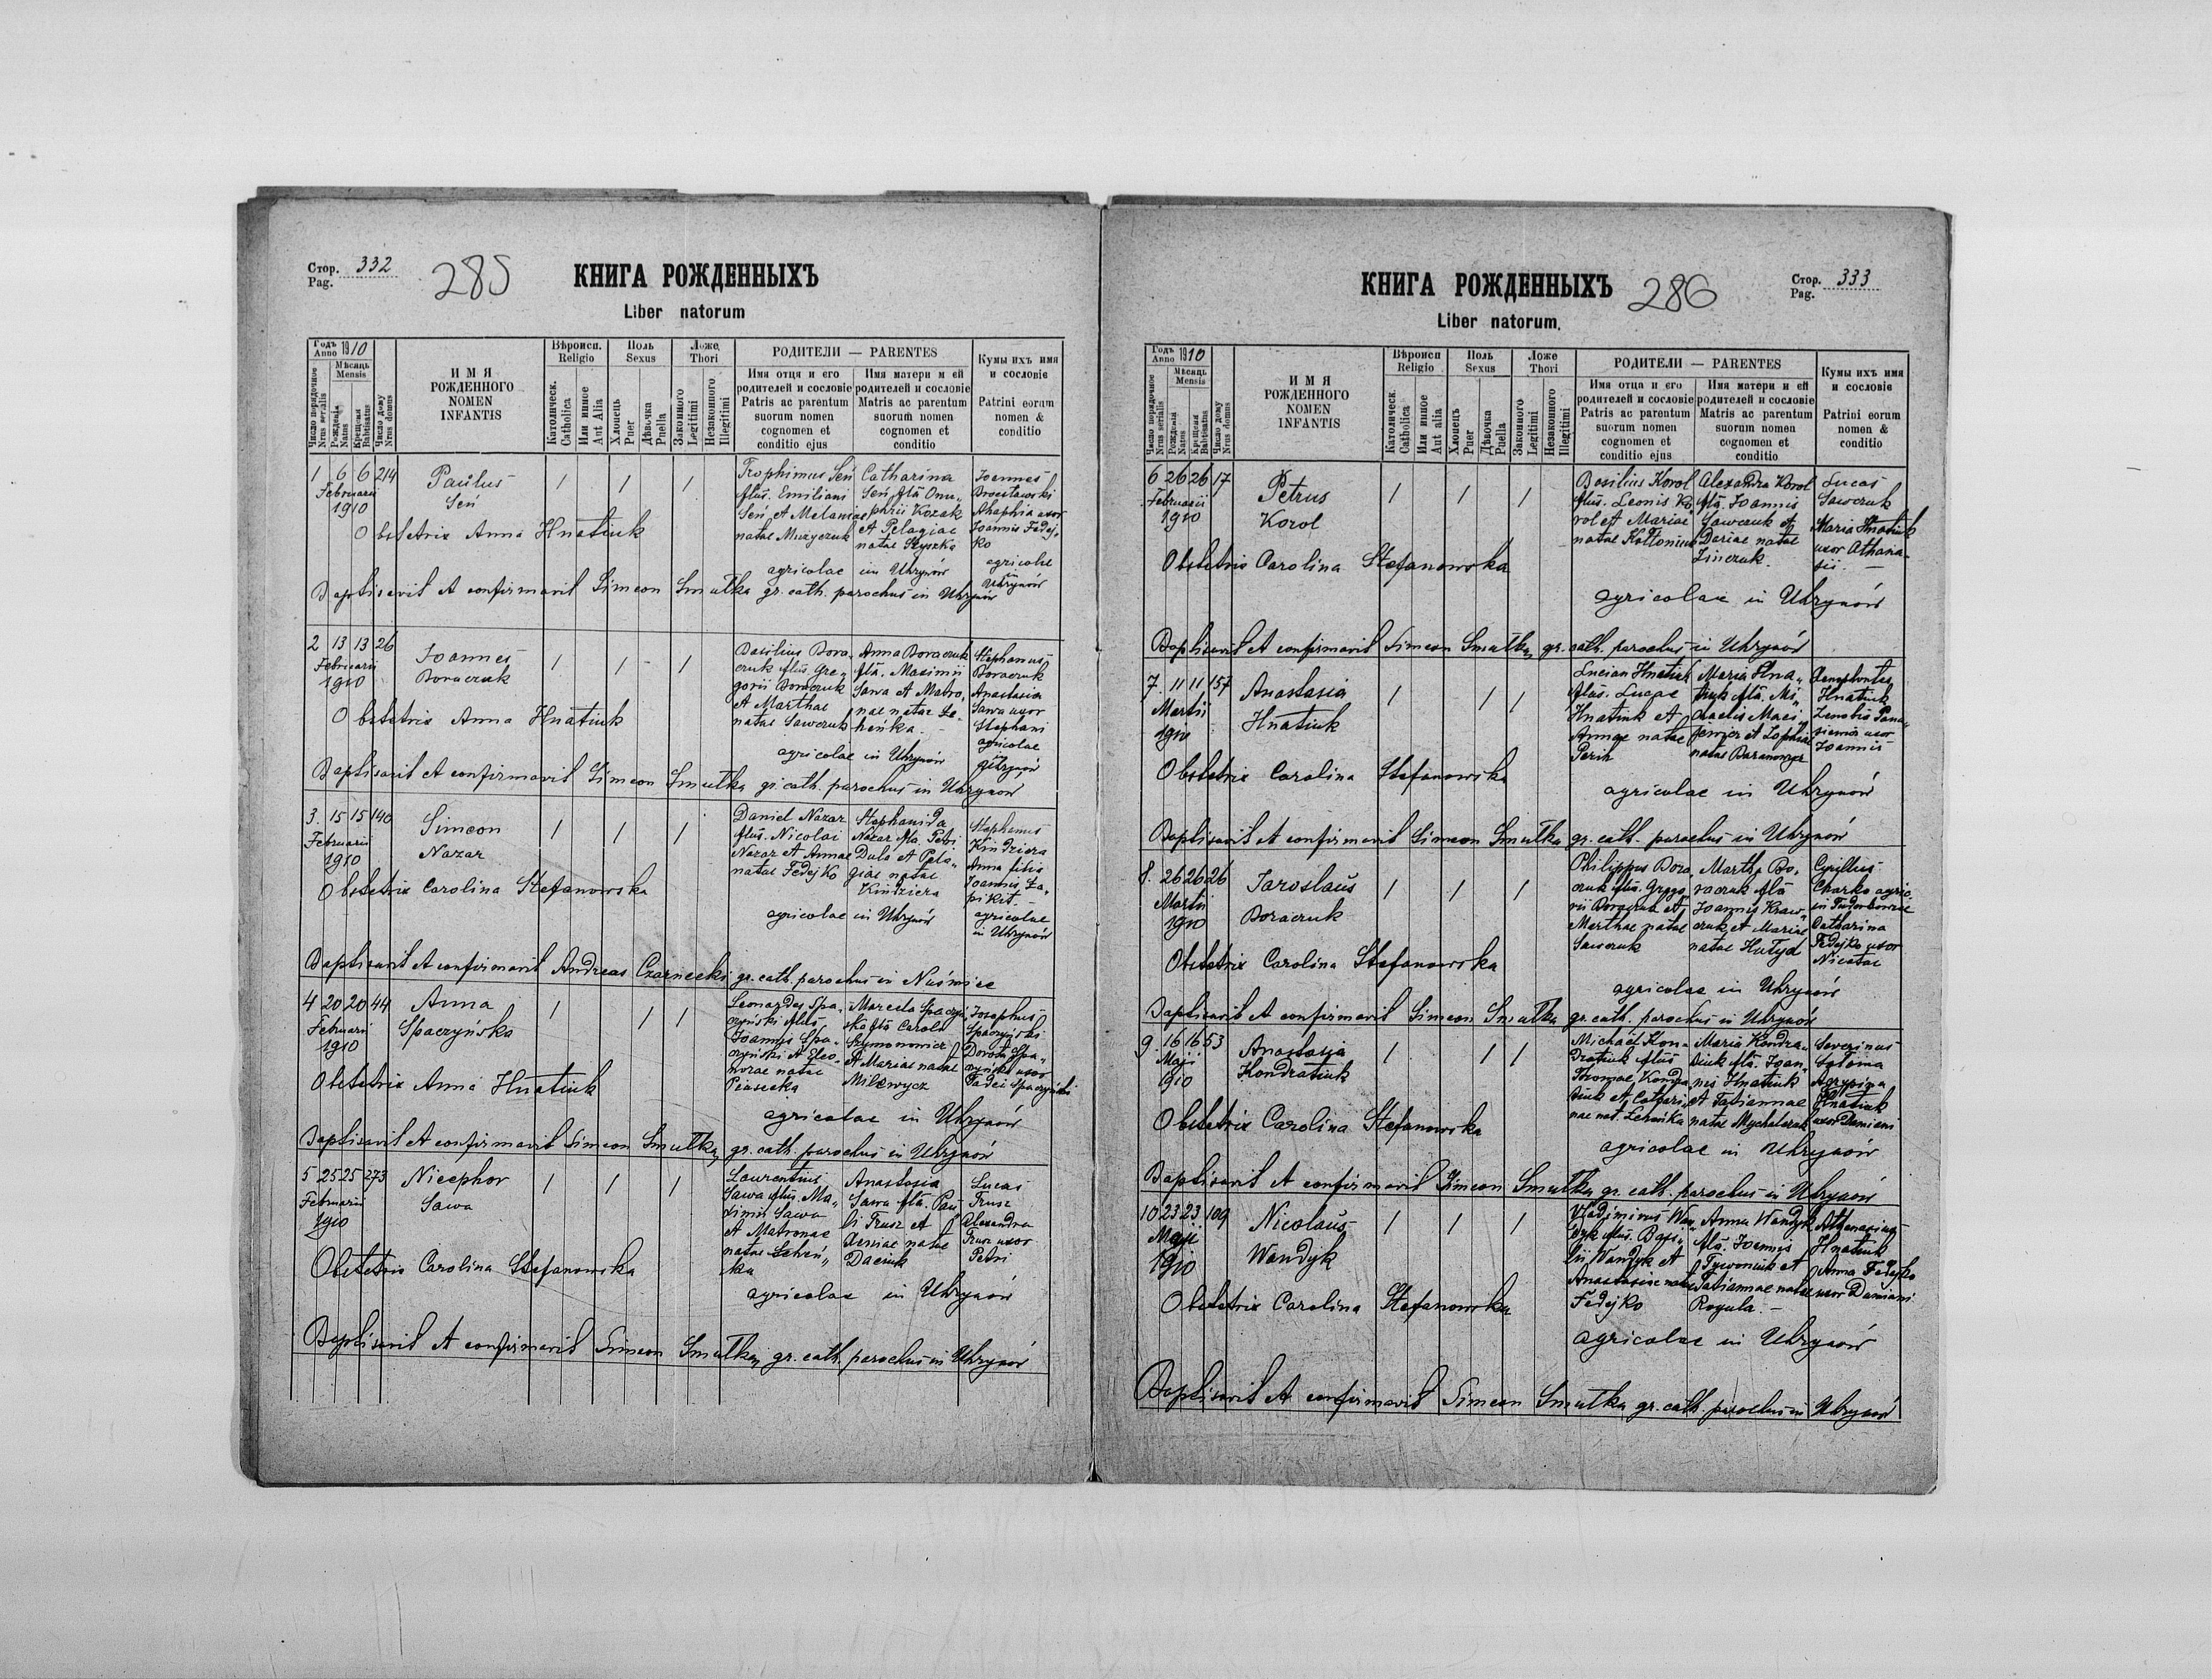 Стор. 332
Pag.
285
КНИГА РОЖДЕННЫХЪ
Liber natorum
Годъ 1910
Anno
Мѣсяць
Mensis
Число порядочное
Nrus serialis
Рожденія
Natus
Крещенія
Babtisatus
Число дому
Nrus domus
ИМЯ
РОЖДЕННОГО
NOMEN
INFANTIS
Вѣроисп.
Religio
Католическ.
Catholica
Или инное
Aut Alia
Полъ
Sexus
Хлопець
Puer
Дѣвочка
Puella
Ложе
Thori
Законного
Legitimi
Незаконного
Illegitimi
РОДИТЕЛИ — PARENTES
Имя отца и его
родителей и сословіе
Patris ac parentum
suorum nomen
cognomen et
conditio ejus
Имя матери и ей
родителей и сословіе
Matris ac parentum
suorum nomen
cognomen et
conditio
Кумы ихъ имя
и сословіе
Patrini eorum
nomen &
conditio
1 6 6 214
Februarii
1910
Paulus
Seń
/ / /
Trophimus Seń
filius Emiliani
Seń et Melaniae
natae Muzyczuk
Catharina
Seń, filia Onu„
phrii Kozak
et Pelagiae
natae Szyszka
Joannes
Ahaphia uxor
Joannis Fedej„
ko
agricolae
Uhrynów
Obstetrix Anna Hnatiuk
agricolae in Uhrynów
Baptisavit et confirmavit Simeon Smulka gr. cath. parochus in Uhrynów
2 13 13 26
Februarii
1910
Joannes
Boraczuk
/ / /
Basilius Bora„
czuk filius Gre„
gorii Boraczuk
et Marthae
natae Sawczuk
Anna Boraczuk
filia Maximi
Sawa et Matro„
nae natae Le„
heńka
Stephanus
Boraczuk
Anastasia
Sawa uxor
Stephani
agricolae
Uhrynów
Obstetrix Anna Hnatiuk
agricolae in Uhrynów
Baptisavit et confirmavit Simeon Smulka gr. cath. parochus in Uhrynów
3. 15 15 140
Februarii
1910
Simeon
Nazar
/ / /
Daniel Nazar
filius Nicolai
Nazar et Annae
natae Fedejko
Stephanida
Nazar filia Petri
Dula et Pela„
giae natae
Kindziera
Stephanus
Kindziera
Anna filia
Joannis
agricolae
in Uhrynów
Obstetrix Carolina Stefanowska
agricolae in Uhrynów
Baptisavit et confirmavit Andreas Czarnecki gr. cath. parochus in Nuśmice
4 20 20 44
Februarii
1910
Anna
Spaczyńska
/ / /
Leonardus Spa„
czyński filius
Joannis Spa„
czyński et Eleo„
norae natae
Piasecka
Szymonowicz
et Mariae natae
Josephus
Spaczyński
Dorota Spa„
Tadei Spaczyński
Obstetrix Anna Hnatiuk
agricolae in Uhrynów
Baptisavit et confirmavit Simeon Smulka, gr. cath. parochus in Uhrynów
5 25 25 273
Februarii
1910
Nicephor
Sawa
/ / /
Laurentius
Sawa filius Ma„
ximi Sawa
et Matronae
natae Leheń„
ka
Anastasia
Sawa filia Pau
li Trusz et
Xeniae natae
Daciuk
Lucas
Trusz
Alexandra
Trusz uxor
Petri
Obstetrix Carolina Stefanowska
agricolae in Uhrynów
Baptisavit et confirmavit Simeon Smulka, gr. cath. parochus in Uhrynów
КНИГА РОЖДЕННЫХЪ
286
Стор. 333
Pag.
Liber natorum.
Годъ 1910
Anno
Мѣсяць
Mensis
Число порядочное
Nrus serialis
Рожденія
Natus
Крещенія
Babtisatus
Число дому
Nrus domus
ИМЯ
РОЖДЕННОГО
NOMEN
INFANTIS
Вѣроисп
Religio
Католическ.
Catholica
Или инное
Aut alia
Полъ
Sexus
Хлопець
Puer
Дѣвочка
Puella
Ложе
Thori
Законного
Legitimi
Незаконного
Illegitimi
РОДИТЕЛИ — PARENTES
Имя отца и его
родителей и сословіе
Patris ac parentum
suorum nomen
cognomen et
conditio ejus
Имя матери и ей
родителей и сословіе
Matris ac parentum
suorum nomen
cognomen et
conditio
Кумы ихъ имя
и сословіе
Patrini eorum
nomen &
conditio
6 26 26 17
Februarii
1910
Petrus
Korol
/ / /
Basilius Korol
filius Leonis Ko
rol et Mariae
natae Kottoniuk
Alexandra Korol
filia Joannis
Sawczuk et
Dariae natae
Zinczuk.
Lucas
Sawczuk
Maria Hnatiuk
uxor Athana
sii. —
Obstetrix Carolina Stefanowska
agricolae in Uhrynów
Baptisavit et confirmavit Simeon Smulka, gr. cath. parochus in Uhrynów
7. 11 11 157
Martii
1910
Anastasia
Hnatiuk
/ / /
Lucian Hnatiuk
filius Lucae
Hnatiuk et
Annae natae
Perih
Maria Hna„
tiuk filia Mi„
chaelis Maci„
jewicz et Sophiae
natae Baranowycz
Hnatiuk
Zenobia Pana„
siewicz uxor
Joannis
Obstetrix Carolina Stefanowska
agricolae in Uhrynów
Baptisavit et confirmavit Simeon Smulka, gr. cath. parochus in Uhrynów
8. 26 26 26
Martii
1910
Jaroslaus
Boraczuk
/ / /
Philippus Bora„
czuk filius Grego„
rii Boraczuk et
Marthae natae
Sawczuk
Martha Bo„
raczuk filia
Joannis Kraw„
czuk et Mariae
natae Hutyd
Cyrillus
Charko agric.
in Tudorkowice
Catharina
Fedejko uxor
Nicetae
Obstetrix Carolina Stefanowska
agricolae in Uhrynów
Baptisavit et confirmavit Simeon Smulka gr. cath. parochus in Uhrynów
9. 16 16 53
Maji
1910
Anastasia
Kondratiuk
/ / /
Michaël Kon„
dratiuk filius
Thomae Kondra„
tiuk et Cathari„
nae nat. Leheńka
Maria Kondra„
tiuk filia Joan„
nis Hnatiuk
et Tatiannae
natae Mychalczuk
Severinus
Agrypina
Hnatiuk
uxor Damiani
Obstetrix Carolina Stefanowska
agricolae in Uhrynów
Baptisavit et confirmavit Simeon Smulka gr. cath. parochus in Uhrynów
10 23 23 109
Maji
1910
Nicolaus
Wandyk
/ / /
Vladimirus Wan„
dyk filius Basi„
lii Wandyk et
Anastasiae natae
Fedejko
Anna Wandyk
filia Joannis
Tywoniuk et
Tatiannae natae
Rogula. —
Athanasius
Hnatiuk
Anna Fedejko
uxor Damiani
Obstetrix Carolina Stefanowska
agricolae in Uhrynów
Baptisavit et confirmavit Simeon Smulka gr. cath. parochus in Uhrynów